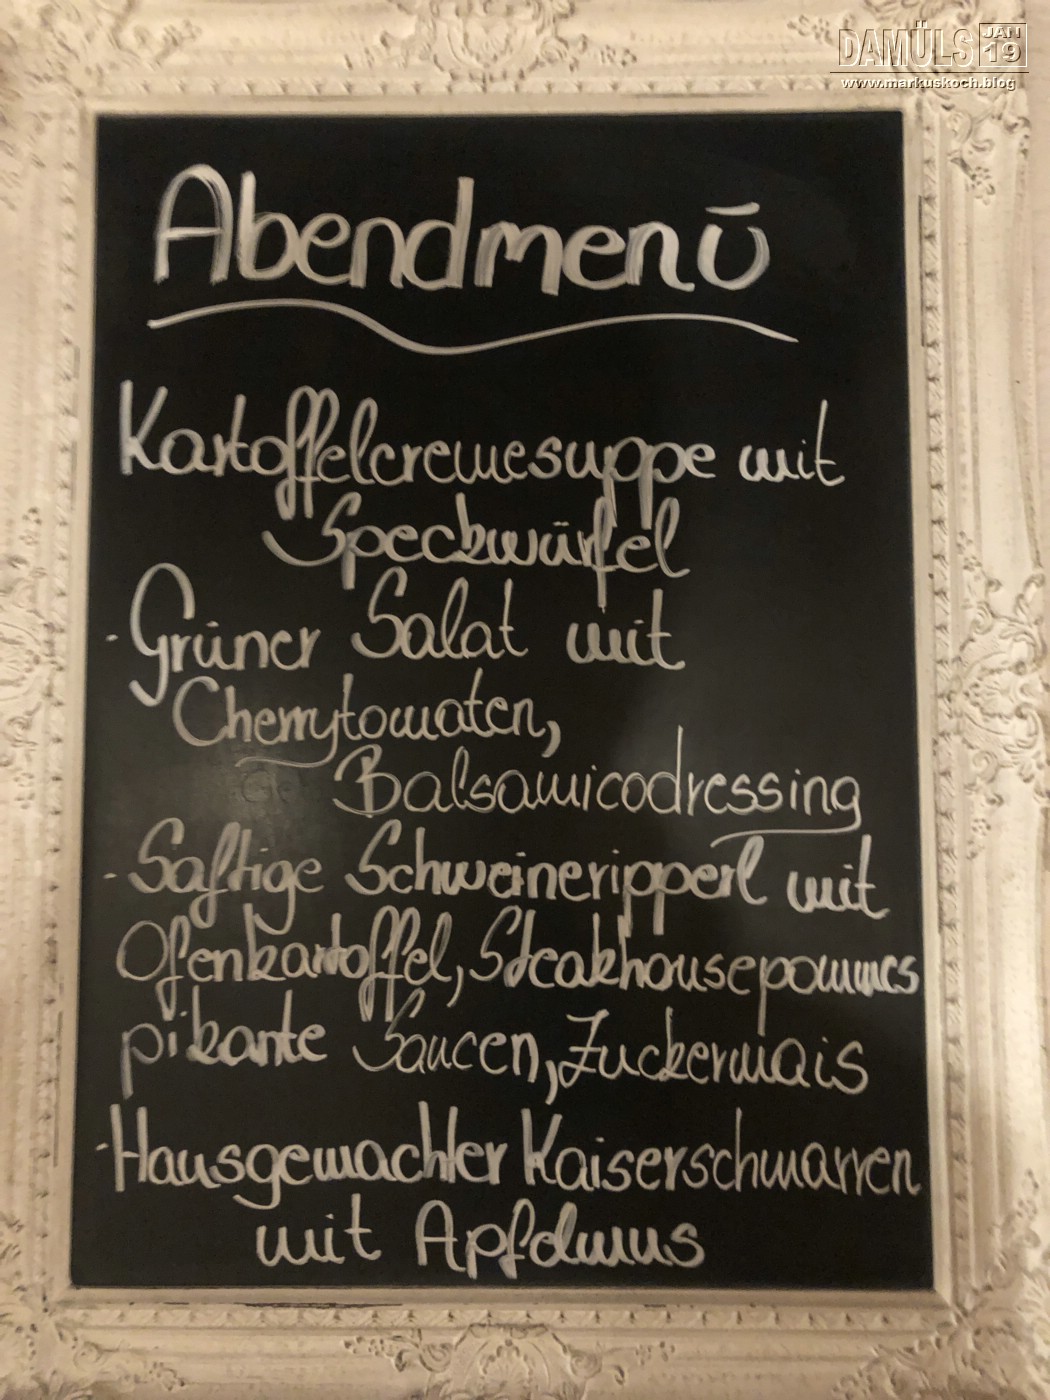 DAMÜLS JAN 19
www.markuskoch.blog
Abendmenü
Kartoffelcremesuppe mit
Speckwürfel
·Grüner Salat mit
Cherrytomaten,
Balsamicodressing
-Saftige Schweineripperl mit
Ofenkartoffel, Steakhousepommes
pikante Saucen, Zuckermais
·Hausgemachter Kaiserschmarren
mit Apfelmus